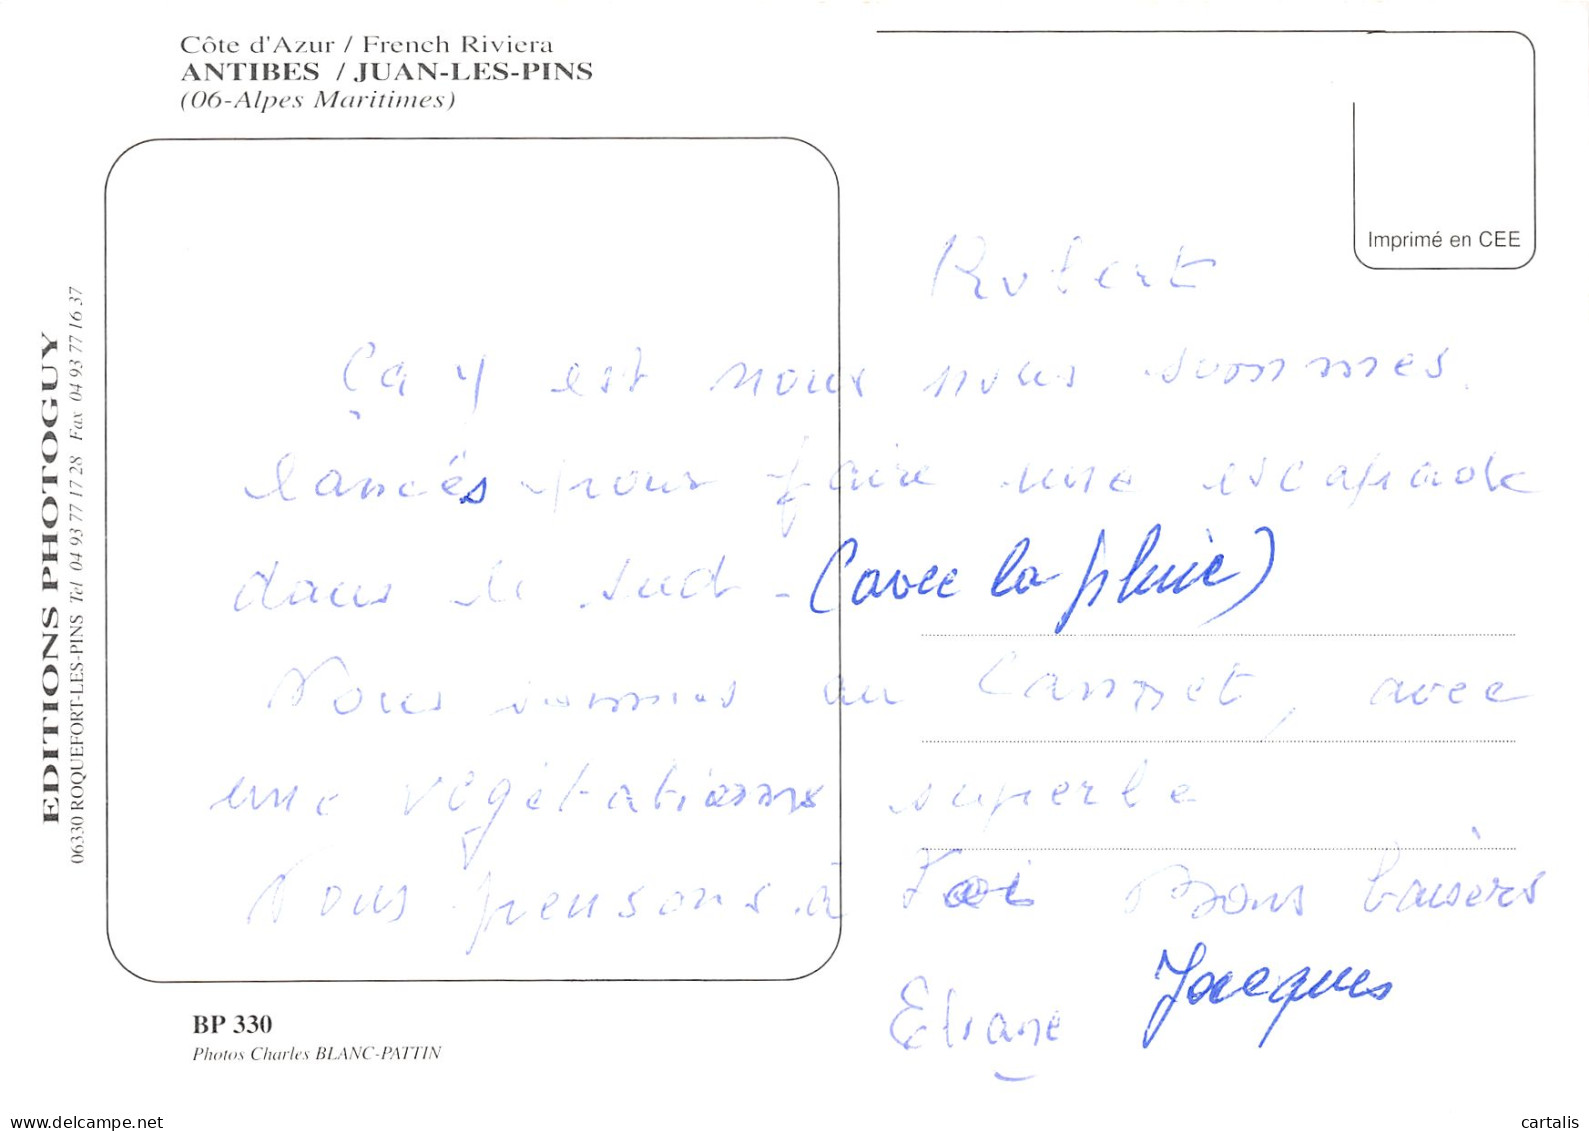 Côte d'Azur / French Riviera
ANTIBES / JUAN-LES-PINS
(06-Alpes Maritimes)
Imprimé en CEE
EDITIONS PHOTOGUY
06330 ROQUEFORT-LES-PINS Tel 04 93 77 17 28 Fax 04 93 77 16 37
Robert
Ça y est nous nous sommes
lancés pour faire une escapade
dans le sud - (avec la pluie)
Nous sommes au Cannet, avec
une végétations superbe
Nous pensons à Toi Bons baisers
Eliane Jacques
BP 330
Photos Charles BLANC-PATTIN
www.delcampe.net
cartalis